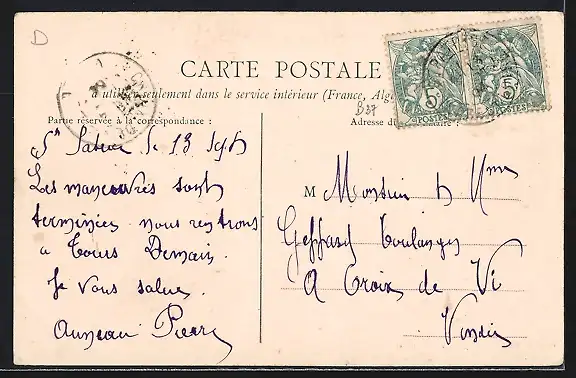 D
CARTE POSTALE
à utiliser seulement dans le service intérieur (France, Alg
Partie réservée à la correspondance :
Adresse du
B37
le 13 Sept
Les manœuvres sont
terminées nous rentrons
a Tours Demain.
Je vous salue
Auneau Pierre
M Monsieur & Mme
Geffard boulanger
A Croix de Vi
Vendée
5
POSTES
5
POSTES